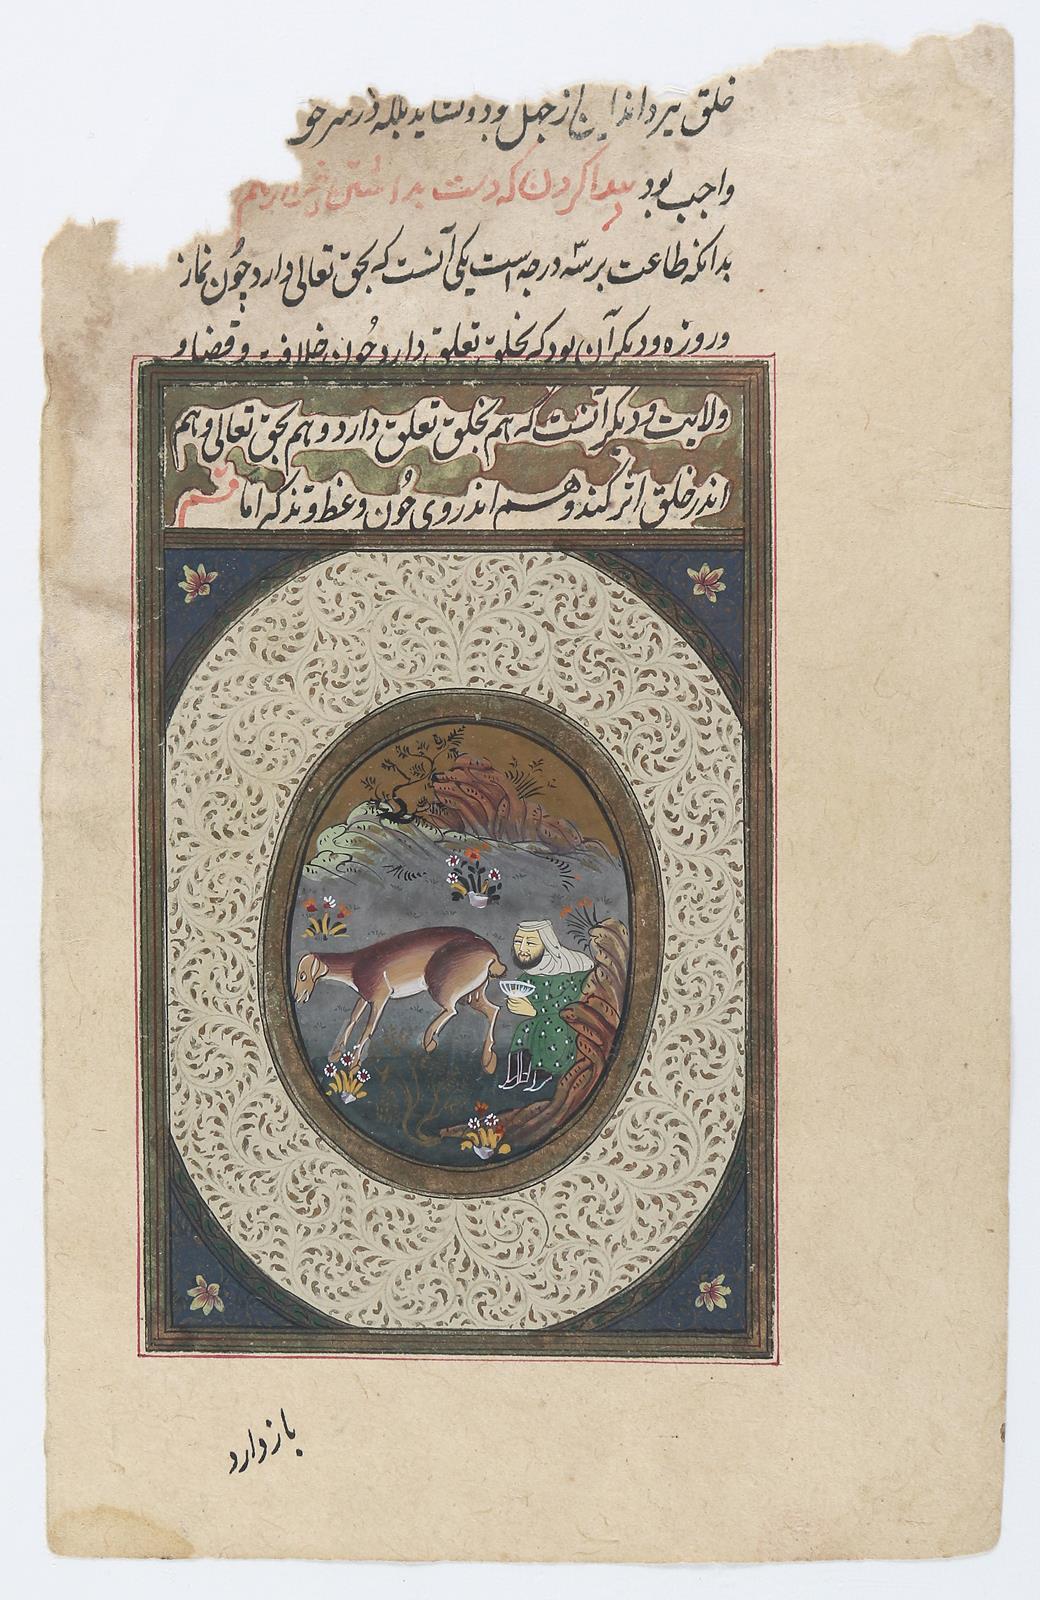 خلق بیرد اما این از جهل بود و نشاید بلکه در هر چو
واجب بود پیدا کردن که دست بداشتن
بدانکه طاعت بر سه درجه است یکی آنست که بحق تعالی دارد چون نماز
و روزه و دیگر آن بود که بخلق تعلق دارد چون خلافت و قضا و
ولایت و دیگر آنست که هم بخلق تعلق دارد و هم بحق تعالی و هم
اندر خلق اثر کند و هم اندر وی چون وعظ و تذکیر اما قسم
باز دارد